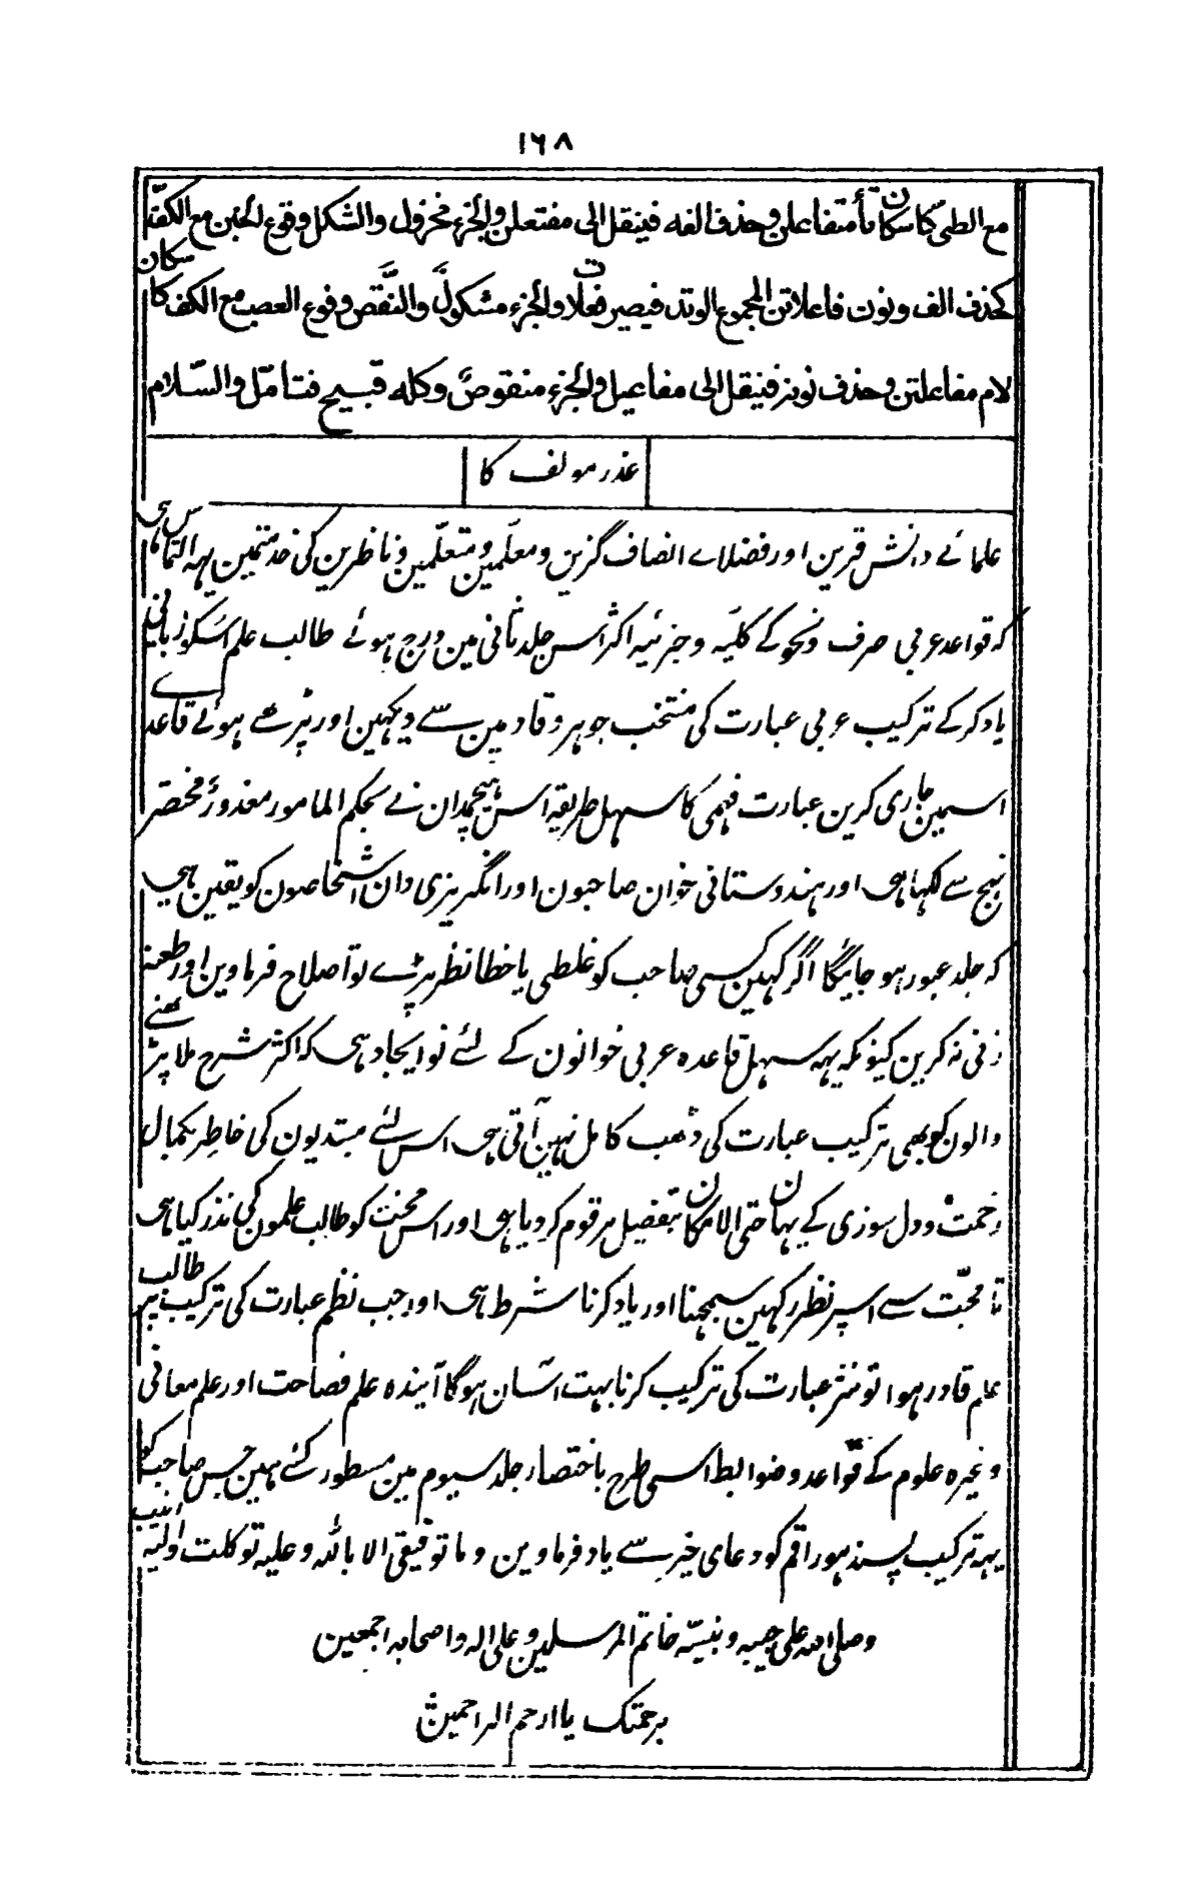 ١٦٨
مع الطى كاسكان تأ متفاعلن وحذف الفه فينقل الى مفتعلن والجزء مخزول والشكل وقوع الخبن مع الكف
كحذف الف ونون فاعلاتن المجموع الوتد فيصير فعلات والجزء مشكولٌ والنَّقص وقوع العصب مع الكف كاسكان
لام مفاعلتن وحذف نونه فينقل الى مفاعيل والجزء منقوصٌ وكله قبيح فتامّل والسّلام
عذر مولف کا
علمائے دانش قرین اور فضلاے انصاف گزین و معلّمین و متعلّمین و ناظرین کی خدمتمین یہہ التماس ہی
کہ قواعد عربی صرف ونحو کے کلیّہ و جزئیہ اکثر اس جلد ثانی مین درج ہوئے طالب علم اسکو زبانی
یاد کرکے ترکیب عربی عبارت کی منتخب جوہر وقاد مین سے دیکہین اور پڑہے ہوئے قاعدے
اسمین جاری کرین عبارت فہمی کا سہل طریقہ اس ہیچمدان نے بحکم المامور معذور مختصر
نہج سے لکہا ہی اور ہندوستانی خوان صاحبون اور انگریزی دان اشخاصون کو یقین ہی
کہ جلد عبور ہو جائیگا اگر کہین کسی صاحب کو غلطی یا خطا نظر پڑے تو اصلاح فرماوین اور طعنہ
زنی نہ کرین کیونکہ یہہ سہل قاعدہ عربی خوانون کے لئے نو ایجاد ہی کہ اکثر شرح ملا پڑھنے
والون کو بھی ترکیب عبارت کی ڈھب کامل نہین آتی ہی اس لئے مبتدیون کی خاطر بکمال
زحمت و دل سوزی کے یہان حتی الامکان بتفصیل مرقوم کردیا ہی اور اس محنت کو طالب علمون کی نذر کیا ہی
تا محبّت سے اسپر نظر رکہین سمجہنا اور یاد کرنا شرط ہی اور جب نظم عبارت کی ترکیب پر طالب
علم قادر ہوا تو نثر عبارت کی ترکیب کرنا بہت اسان ہوگا آیندہ علم فصاحت اور علم معانی
وغیرہ علوم کے قواعد وضوابط اسی طرح باختصار جلد سیوم مین مسطور کئے ہین جس صاحب کو
یہہ ترکیب پسند ہو راقم کو دعای خیر سے یاد فرماوین وما توفیقی الا باللہ وعلیہ توکلت والیہ انیب
وصلی اللہ علی حبیبہ ونبیّہ خاتم المرسلین وعلی الہ واصحابہ اجمعین
برحمتک یا ارحم الراحمین